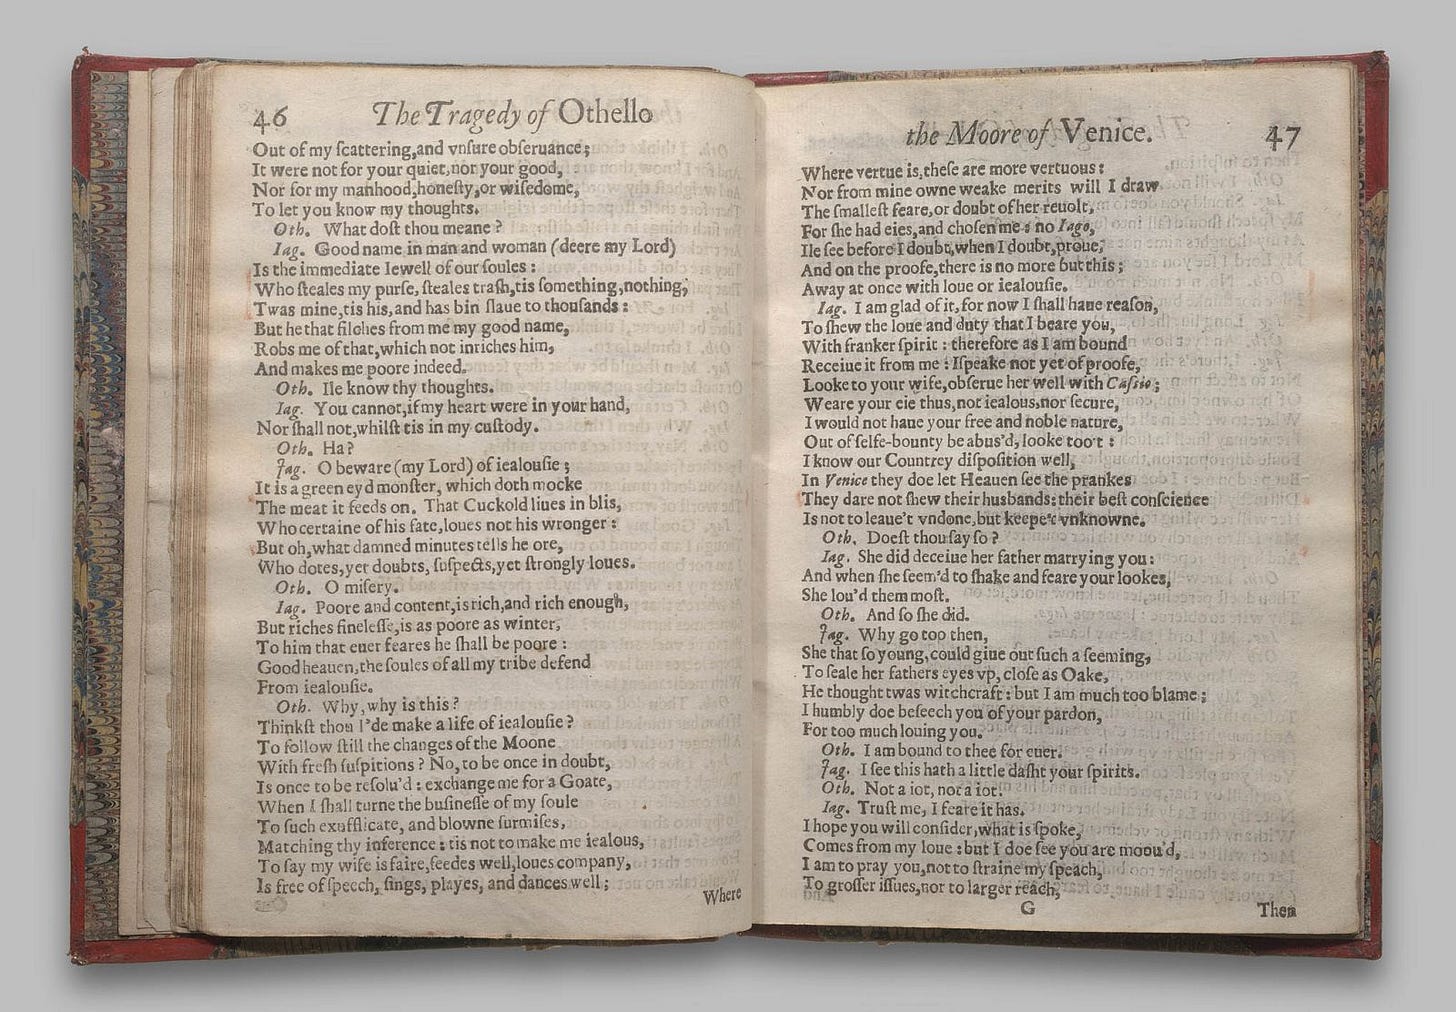 46 The Tragedy of Othello
Out of my ſcattering,and vnſure obſeruance;
It were not for your quiet,nor your good,
Nor for my manhood,honeſty,or wiſedome,
To let you know my thoughts.
Oth. What doſt thou meane?
Iag. Good name in man and woman (deere my Lord)
Is the immediate Iewell of our ſoules:
Who ſteales my purſe, ſteales traſh,tis ſomething,nothing;
Twas mine,tis his,and has bin ſlaue to thouſands:
But he that filches from me my good name,
Robs me of that,which not inriches him,
And makes me poore indeed.
Oth. Ile know thy thoughts.
Iag. You cannot,if my heart were in your hand,
Nor ſhall not,whilſt tis in my cuſtody.
Oth. Ha?
Iag. O beware (my Lord) of iealouſie;
It is a green eyd monſter, which doth mocke
The meat it feeds on. That Cuckold liues in blis,
Who certaine of his fate,loues not his wronger:
But oh,what damned minutes tells he ore,
Who dotes,yet doubts, ſuſpects,yet ſtrongly loues.
Oth. O miſery.
Iag. Poore and content,is rich,and rich enough,
But riches fineleſſe,is as poore as winter,
To him that euer feares he ſhall be poore:
Good heauen,the ſoules of all my tribe defend
From iealouſie.
Oth. Why,why is this?
Thinkſt thou I'de make a life of iealouſie?
To follow ſtill the changes of the Moone
With freſh ſuſpitions? No,to be once in doubt,
Is once to be reſolu'd: exchange me for a Goate,
When I ſhall turne the buſineſſe of my ſoule
To ſuch exufflicate, and blowne ſurmiſes,
Matching thy inference: tis not to make me iealous,
To ſay my wife is faire,feedes well,loues company,
Is free of ſpeech, ſings, playes, and dances well;
Where
the Moore of Venice. 47
Where vertue is,theſe are more vertuous:
Nor from mine owne weake merits will I draw
The ſmalleſt feare,or doubt of her reuolt,
For ſhe had eies,and choſen me: no Iago,
Ile ſee before I doubt,when I doubt,proue,
And on the proofe,there is no more but this;
Away at once with loue or iealouſie.
Iag. I am glad of it, for now I ſhall haue reaſon,
To ſhew the loue and duty that I beare you,
With franker ſpirit: therefore as I am bound
Receiue it from me: I ſpeake not yet of proofe,
Looke to your wife,obſerue her well with Caſsio;
Weare your eie thus,not iealous,nor ſecure,
I would not haue your free and noble nature,
Out of ſelfe-bounty be abus'd, looke too't:
I know our Countrey diſpoſition well,
In Venice they doe let Heauen ſee the prankes
They dare not ſhew their husbands: their beſt conſcience
Is not to leaue't vndone,but keepe't vnknowne.
Oth. Doeſt thou ſay ſo?
Iag. She did deceiue her father marrying you:
And when ſhe ſeem'd to ſhake and feare your lookes,
She lou'd them moſt.
Oth. And ſo ſhe did.
Iag. Why go too then,
She that ſo young,could giue out ſuch a ſeeming,
To ſeale her fathers eyes vp, cloſe as Oake,
He thought twas witchcraft: but I am much too blame;
I humbly doe beſeech you of your pardon,
For too much louing you.
Oth. I am bound to thee for euer.
Iag. I ſee this hath a little daſht your ſpirits.
Oth. Not a iot, not a iot.
Iag. Truſt me, I feare it has.
I hope you will conſider,what is ſpoke,
Comes from my loue: but I doe ſee you are moou'd,
I am to pray you,not to ſtraine my ſpeach,
To groſſer iſſues,nor to larger reach,
G
Then